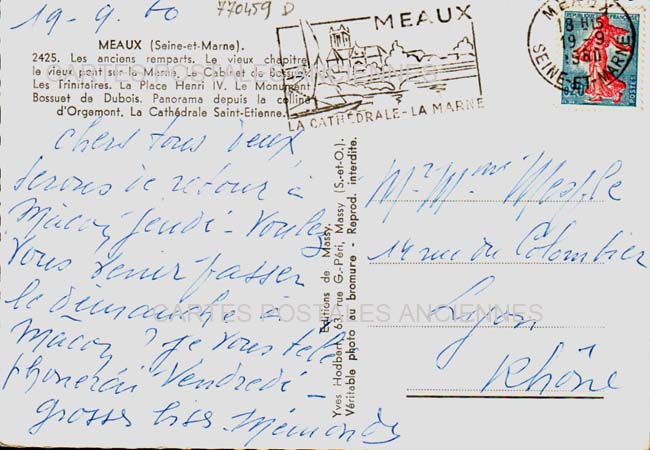 19-9.60
770459 D
MEAUX (Seine-et-Marne).
2425. Les anciens remparts. Le vieux chapitre
le vieux pont sur la Marne. Le Cabinet de Bossuet
Les Trinitaires. La Place Henri IV. Le Monument
Bossuet de Dubois. Panorama depuis la colline
d'Orgemont. La Cathédrale Saint-Etienne.
MEAUX
LA CATHÉDRALE-LA MARNE
MEAUX
18 H15
19-9
1960
SEINE-ET-MARNE
REPUBLIQUE FRANÇAISE
POSTES
chers tous deux
serons de retour à
Macon jeudi - voulez
vous venir passer
le dimanche à
Macon ? je vous télé
phonerai Vendredi -
grosses bises
Editions de Massy.
Yves Hodbert, 63, rue G.-Péri, Massy (S.-et-O.).
Véritable photo au bromure - Reprod. interdite.
Mr Mme
14 rue du Colombier
Lyon
Rhône
CARTES POSTALES ANCIENNES
CARTES POSTALES ANCIENNES